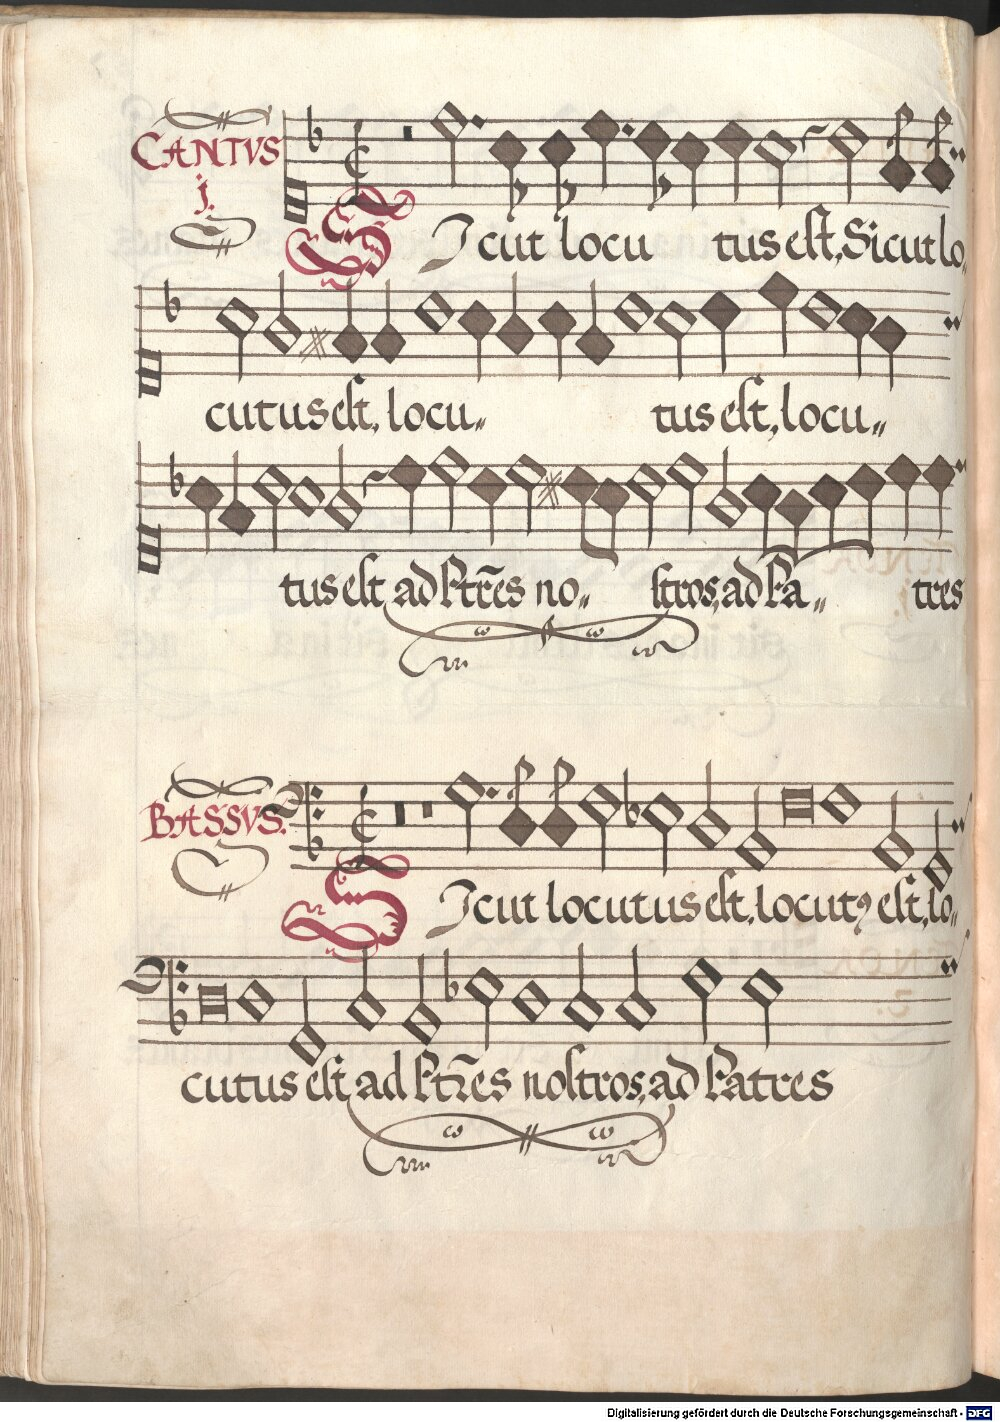 CANTVS
j.
SIcut locu tus est, Sicut lo,
cutus est, locu„ tus est, locu„
tus est ad ptr̃es no„ stros, ad pa„ tres
BASSVS.
SIcut locutus est, locutꝰ est, lo„
cutus est ad ptr̃es nostros, ad patres
Digitalisierung gefördert durch die Deutsche Forschungsgemeinschaft - DFG